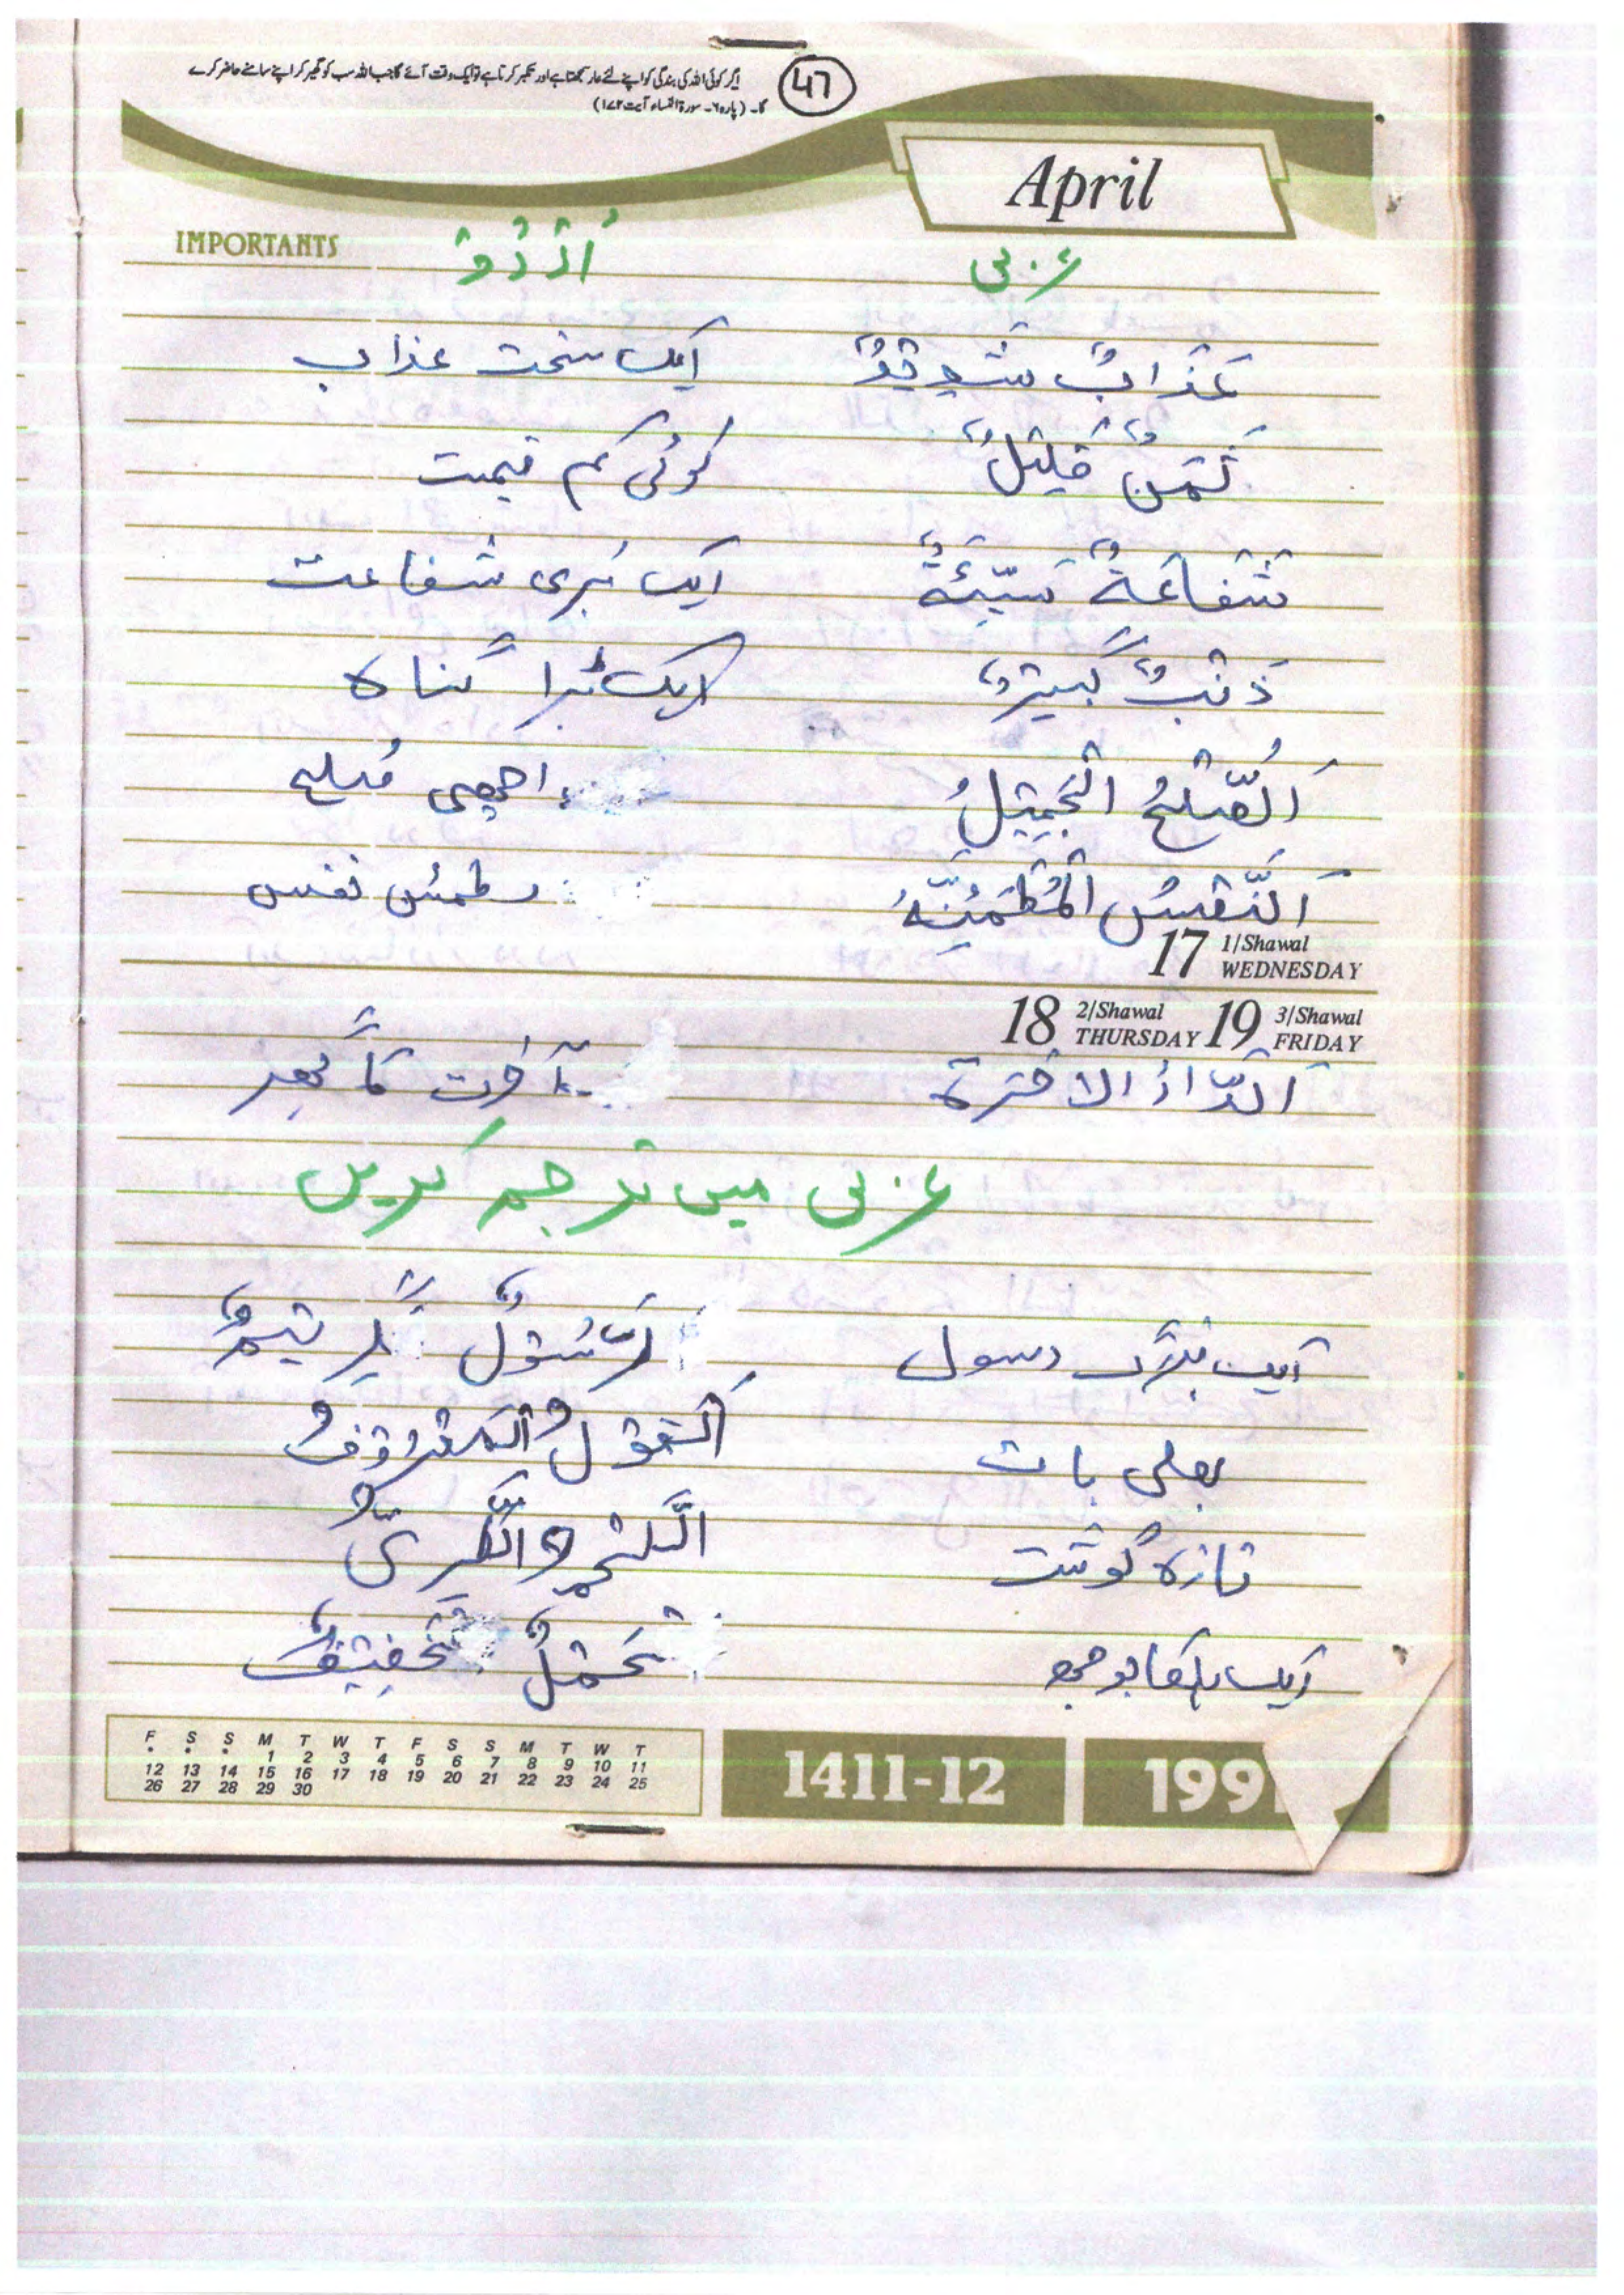 اگر کوئی اللہ کی بندگی کو اپنے لئے عار سمجھتا ہے اور تکبر کرتا ہے تو ایک وقت آئے گا جب اللہ سب کو گھیر کر اپنے سامنے حاضر کرے
گا۔ (پارہ ۶۔ سورۃ النساء آیت ۱۷۲)
47
April
IMPORTANTS
عربی اُرْدُوْ
عَذَابٌ شَدِيْدٌ ایک سخت عذاب
ثَمَنٌ قَلِيْلٌ کوئی کم قیمت
شَفَاعَةٌ سَيِّئَةٌ ایک بُری شفاعت
ذَنْبٌ كَبِيْرٌ ایک بڑا گناہ
اَلصُّلْحُ الْجَمِيْلُ اچھی صُلح
اَلنَّفْسُ الْمُطْمَئِنَّةُ مطمئن نفس
17 1/Shawal WEDNESDAY
18 2/Shawal THURSDAY 19 3/Shawal FRIDAY
اَلدَّارُ الاخرة آخرت کا گھر
عربی میں ترجمہ کریں
ایک بزرگ رسول رَسُوْلٌ كَرِيْمٌ
بھلی بات اَلْقَوْلُ الْمَعْرُوْفُ
تازہ گوشت اَللَّحْمُ الطَّرِيُّ
ایک ہلکا بوجھ حَمْلٌ خَفِيْفٌ
F S S M T W T F S S M T W T
• • • 1 2 3 4 5 6 7 8 9 10 11
12 13 14 15 16 17 18 19 20 21 22 23 24 25
26 27 28 29 30
1411-12 199